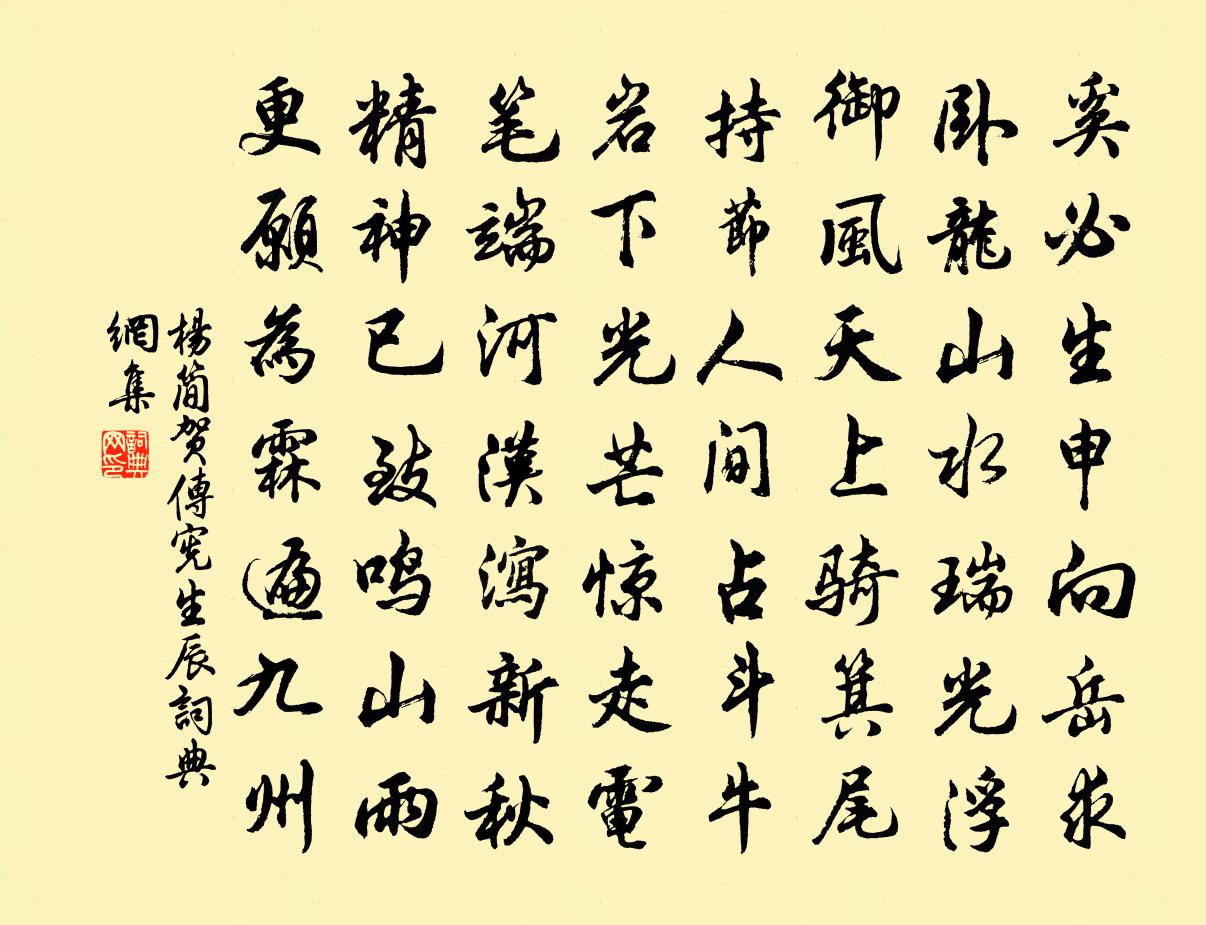 奚必生申向岳求
卧龍山水瑞光浮
御風天上騎箕尾
持節人間占斗牛
岩下光芒惊走電
笔端河漢瀉新秋
精神已致鸣山雨
更願為霖遍九州
楊简贺傳宪生辰詞典
網集
詞典网印